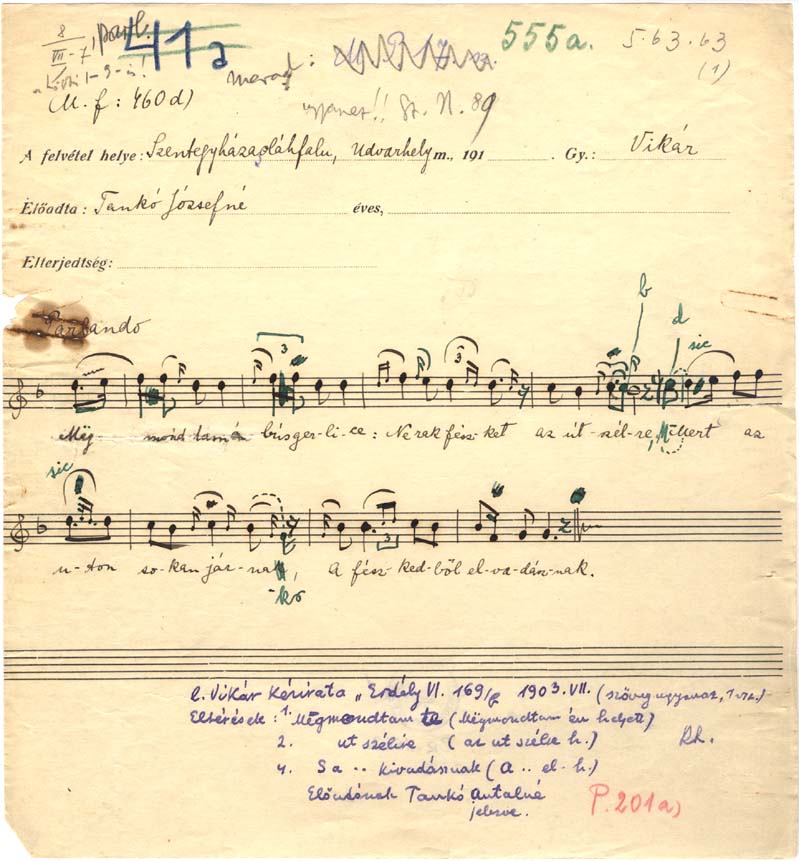 8
VII - 7
parl.
41a
marad:
555a.
5.63.63
(1)
M. f: 460d)
ugyanez!! Gr. N. 89
A felvétel helye: Szentegyházasoláhfalu, Udvarhely m., 191 . Gy.: Vikár
Előadta: Tankó Józsefné éves,
Elterjedtség:
Parlando
3 3 b d sic
Még mondtam én búsger-li-ce: Ne rak fész-ket az út-szél-re, Mert az
sic
3
u-ton sokan jár-nak, A fész-kedből el-va-dász-nak.
-kő
l. Vikár kézirata „Erdély VI. 169/ 1903. VII. (szöveg ugyanaz, 1 vsz.)
Eltérések: 1. Mégmondtam (Mégmondtam én helyett)
2. ut szélire (az ut szélre h.)
4. S a .. kivadásznak (A .. el- h.)
Előadónak Tankó Antalné
jelezve.
Rh.
P. 201a)